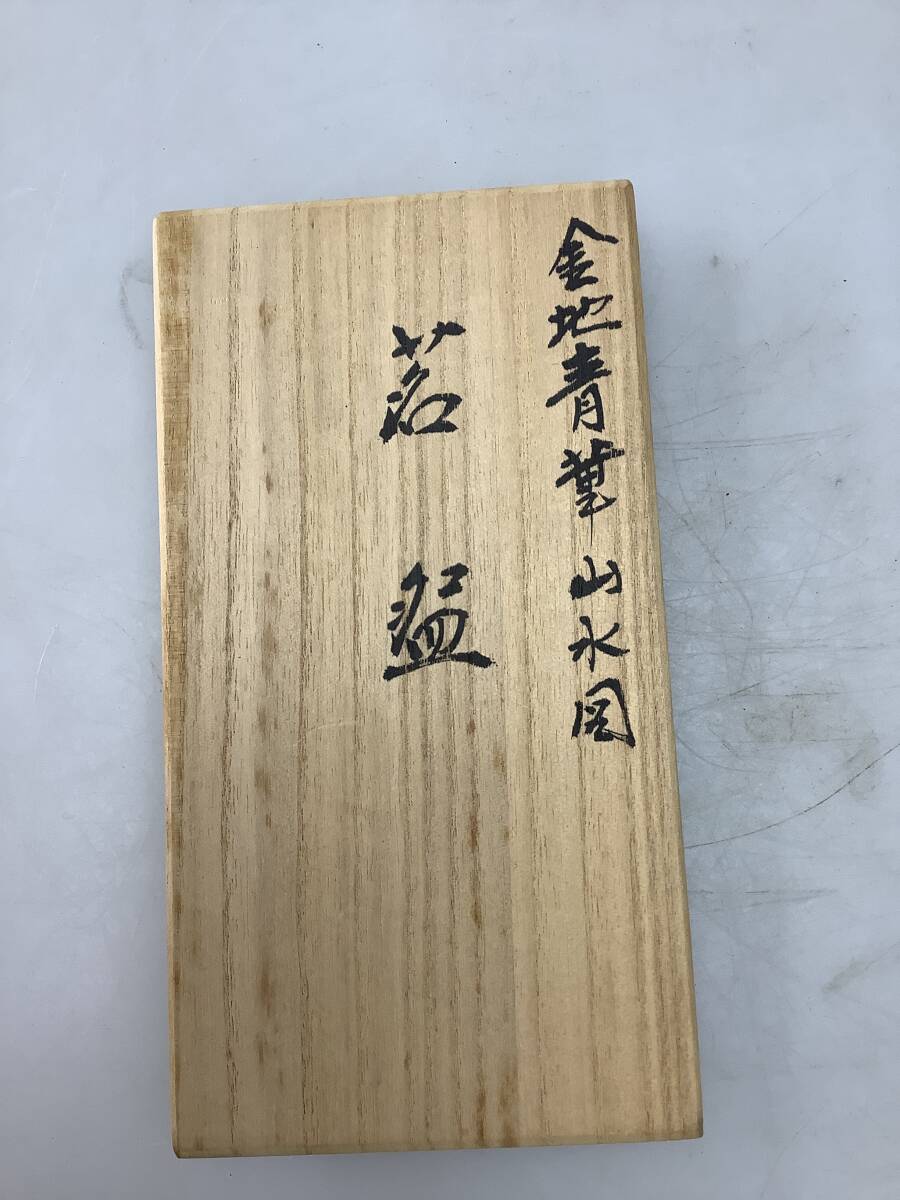 金地青華山水図
茗盌